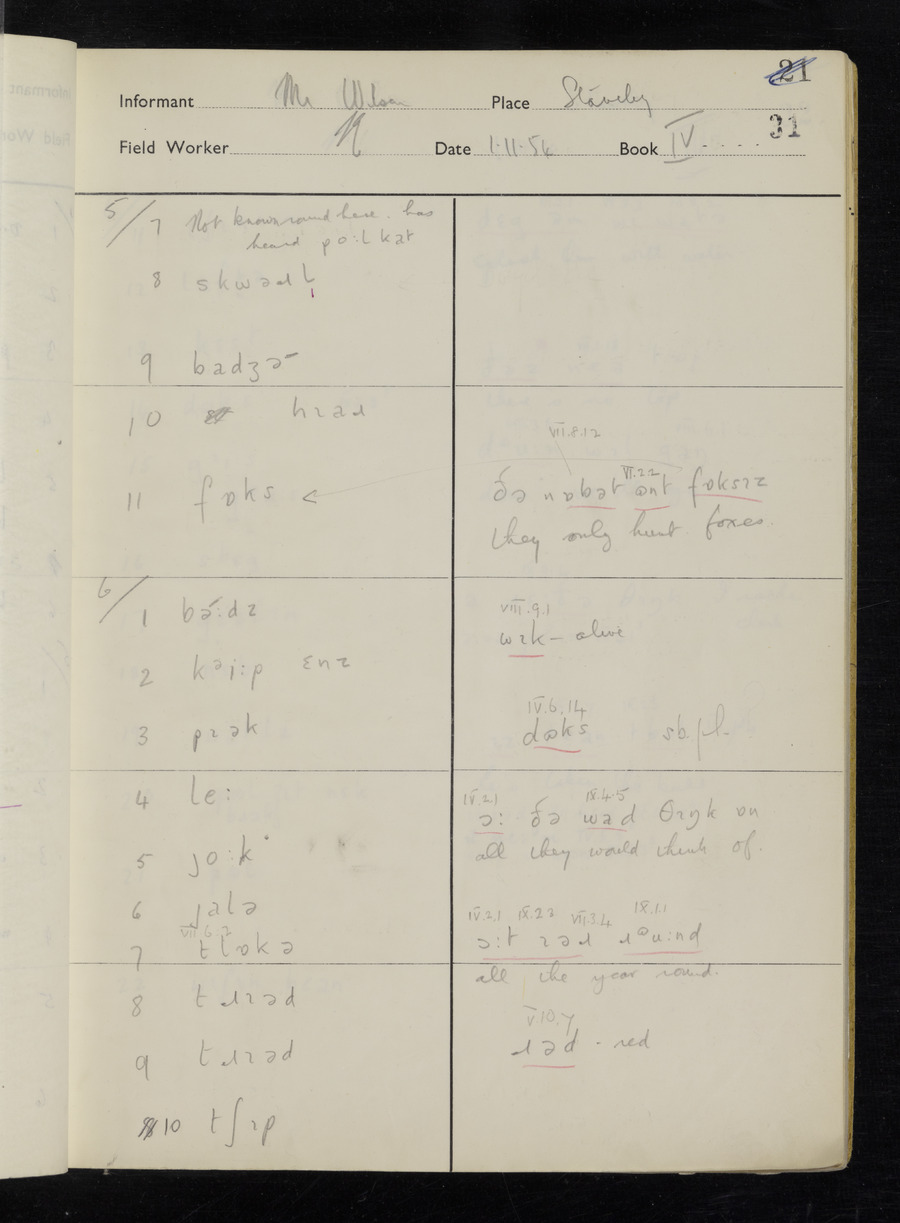 21
Informant Mr Wilson Place
31
Field Worker N Date 1.11.54 Book IV
5/7 Not known round here. has
heard po:l kat
8 skwəɹl̩
9 badʒə
10
11 fɒks <
6/1 bə:dz
2 kəi:p ɛnz
3
4 le:
5 jo:k
6 jalə
VII.6.2
7 tlɒkə
8 tɹɪəd
9 tɹɪəd
10 tʃɪp
VII.8.12
VI.2.2
ðə nɒbət fɒksɪz
they only hunt foxes.
VIII.9.1
wɪk – alive
IV.6.14
sb.pl.
IV.2.1 IX.4.5
ɔ: ðə wəd θɪŋk ɒn
all they would think of.
IV.2.1 VII.3.4 IX.1.1
all the year round.
V.10.7
ɹəd - red